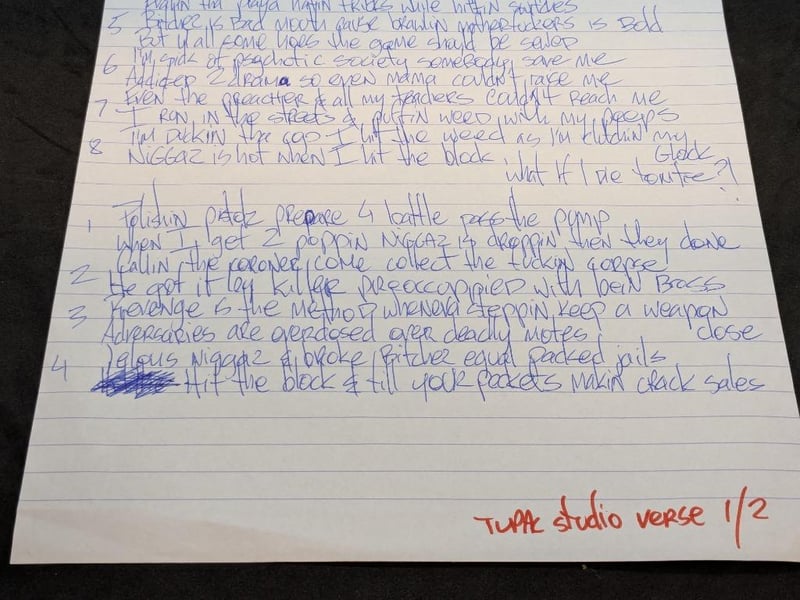 Playa hatin tricks while hittin switches
5 Bitches is Bad mouth cause brawlin motherfuckers is Bold
But y'all some hoes the game should be sewed
6 I'm sick of psychotic society somebody save me
Addicted 2 drama so even mama couldn't raise me
7 Even the preacher & all my teachers couldn't Reach me
I run in the streets & puffin weed with my peeps
I'm Duckin the cop I hit the weed as I'm clutchin my
8 NiGGAZ is hot when I hit the block Glock
What If I die tonite?!
1 Polishin pistolz prepare 4 battle pass the pump
When I get 2 poppin NiGGAZ is droppin then they done
2 Callin the coroner come collect the fuckin corpse
He got it by killer preoccupied with bein Boss
3 Revenge is the method wheneva steppin keep a weapon
Adversaries are overdosed over deadly motes close
4 Jelous NiggaZ & broke Bitches equal packed jails
Hit the block & fill your pockets makin crack sales
TUPAC studio verse 1/2